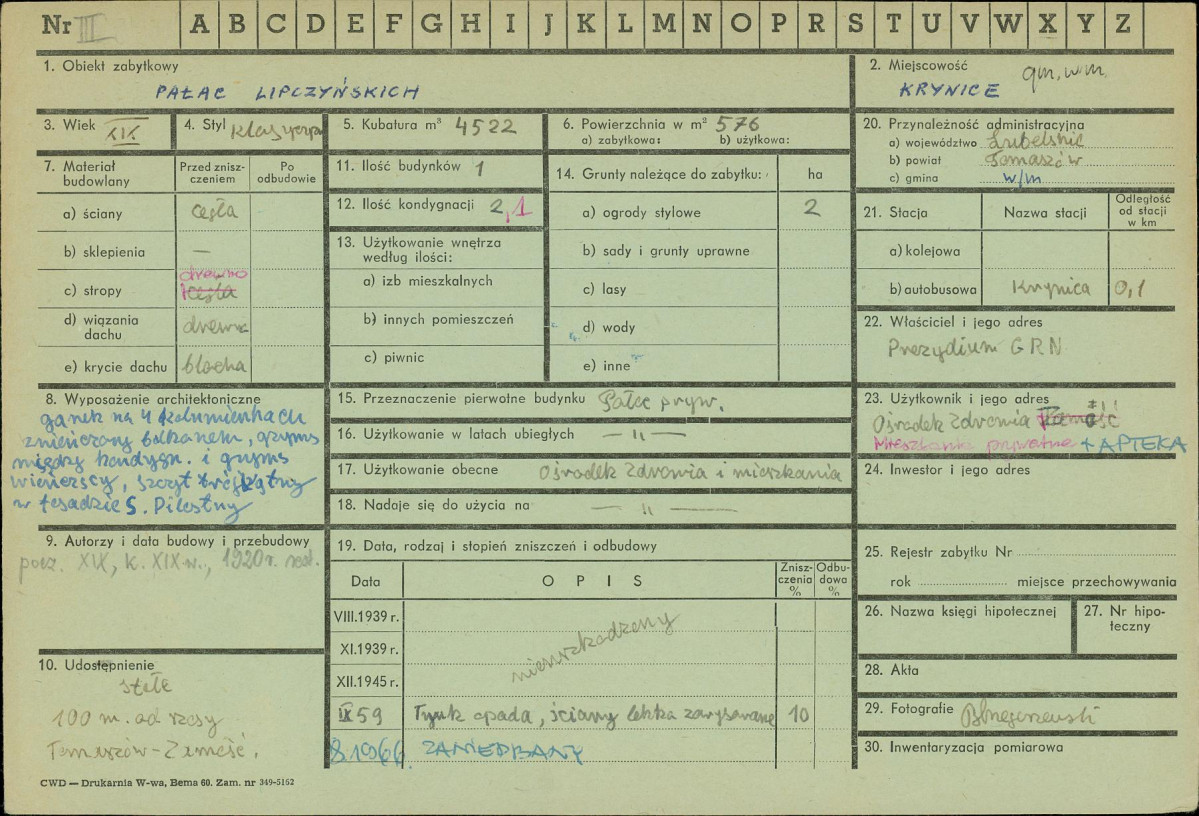 Nr III A B C D E F G H I J K L M N O P R S T U V W X Y Z
1. Obiekt zabytkowy
PAŁAC LIPCZYŃSKICH
2. Miejscowość gm. w/m.
KRYNICE
3. Wiek XIX
4. Styl klasycyzm
5. Kubatura m³ 4522
6. Powierzchnia w m² 576
a) zabytkowa: b) użytkowa:
20. Przynależność administracyjna
a) województwo Lubelskie
b) powiat Tomaszów
c) gmina w/m
7. Materiał budowlany
Przed zniszczeniem
Po odbudowie
a) ściany cegła
b) sklepienia —
drewno
c) stropy cegła
d) wiązania dachu drewno
e) krycie dachu blacha
11. Ilość budynków 1
12. Ilość kondygnacji 2,1
13. Użytkowanie wnętrza
według ilości:
a) izb mieszkalnych
b) innych pomieszczeń
c) piwnic
14. Grunty należące do zabytku: ha
a) ogrody stylowe 2
b) sady i grunty uprawne
c) lasy
d) wody
e) inne
21. Stacja
Nazwa stacji
Odległość od stacji w km
a) kolejowa
b) autobusowa Krynica 0,1
22. Właściciel i jego adres
Prezydium GRN
8. Wyposażenie architektoniczne
ganek na 4 kolumienkach
zwieńczony balkonem, gzyms
między kondygn. i gzyms
wieńczący, szczyt trójkątny
w fasadzie S. Pilastry
15. Przeznaczenie pierwotne budynku Pałac pryw.
16. Użytkowanie w latach ubiegłych — " —
17. Użytkowanie obecne Ośrodek Zdrowia i mieszkania
18. Nadaje się do użycia na — " —
23. Użytkownik i jego adres
Ośrodek Zdrowia
Mieszkania prywatne + APTEKA
24. Inwestor i jego adres
9. Autorzy i data budowy i przebudowy
pocz. XIX, k. XIX w., 1920 r. rest.
19. Data, rodzaj i stopień zniszczeń i odbudowy
Data
OPIS
Zniszczenia %
Odbudowa %
VIII.1939 r.
XI.1939 r.
XII.1945 r.
nieuszkodzony
IX 59 Tynk opada, ściany lekko zarysowane 10
8.1966 ZANIEDBANY
25. Rejestr zabytku Nr
rok miejsce przechowywania
26. Nazwa księgi hipotecznej
27. Nr hipoteczny
28. Akta
29. Fotografie
30. Inwentaryzacja pomiarowa
10. Udostępnienie
stałe
100 m. od szosy
Tomaszów-Zamość.
CWD — Drukarnia W-wa, Bema 60. Zam. nr 349-5162